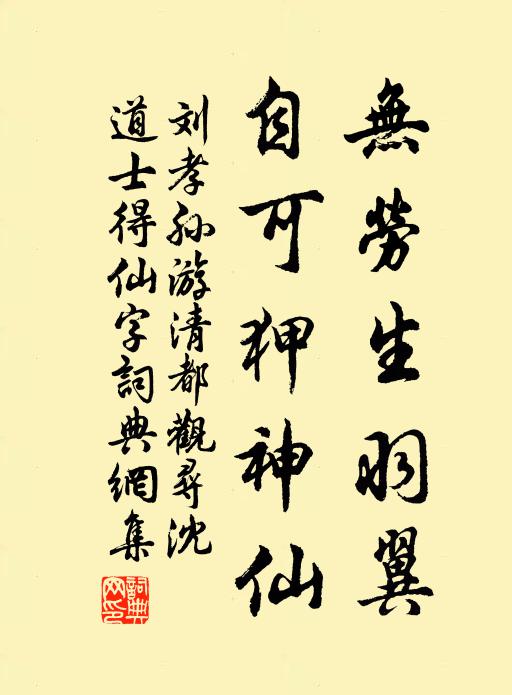 無勞生羽翼
自可狎神仙
刘孝孙游清都觀尋沈
道士得仙字詞典網集